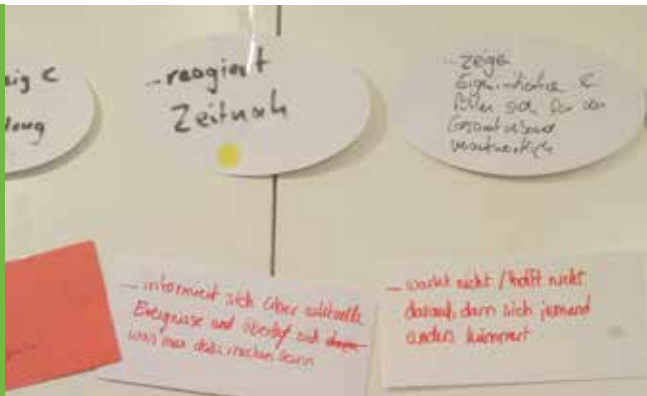 ...reagiert
Zeitnah
...zeige
Eigeninitiative &
fühlen sich für den
Gesamt
verantwortlich
...informiert sich über aktuelle
Ereignisse und überlegt sich
was man dabei machen kann
...wartet nicht / hofft nicht
darauf, dass sich jemand
anders kümmert